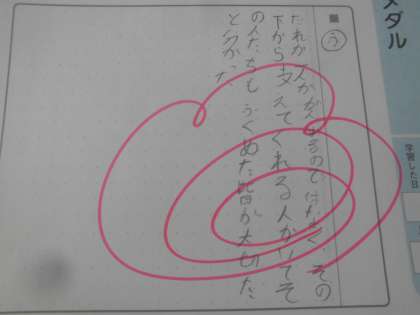 メダル
学習した日
■ う
だれか一人ががんばるのではなく、その
下から支えてくれる人がいてそ
の人たちもふくめた皆が大切だ
と分かった